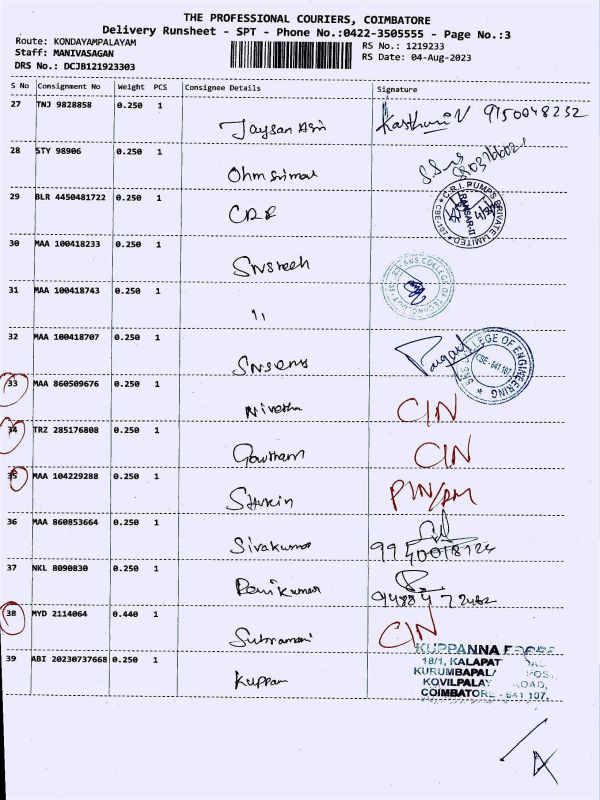 THE PROFESSIONAL COURIERS, COIMBATORE
Delivery Runsheet - SPT - Phone No.:0422-3505555 - Page No.:3
Route: KONDAYAMPALAYAM
RS No.: 1219233
Staff: MANIVASAGAN
RS Date: 04-Aug-2023
DRS No.: DCJB121923303
S No Consignment No Weight PCS Consignee Details Signature
27 TNJ 9828858 0.250 1 9150048232
28 STY 98906 0.250 1
29 BLR 4450481722 0.250 1 C.R.I. PUMPS PRIVATE LIMITED
30 MAA 100418233 0.250 1 SNS COLLEGE OF TECHNOLOGY
31 MAA 100418743 0.250 1 11
32 MAA 100418707 0.250 1 SNS COLLEGE OF ENGINEERING CBE - 641 107
33 MAA 860509676 0.250 1 Nivetha CIN
34 TRZ 285176808 0.250 1 Gowtham CIN
35 MAA 104229288 0.250 1
36 MAA 860853664 0.250 1 Sivakumar
37 NKL 8090830 0.250 1 Ravikumar
38 MYD 2114064 0.440 1 Subramani CIN
39 ABI 20230737668 0.250 1 Kuppan
KUPPANNA
18/1, KALAPAT
KURUMBAPAL
KOVILPALAY
COIMBATORE - 641 107.